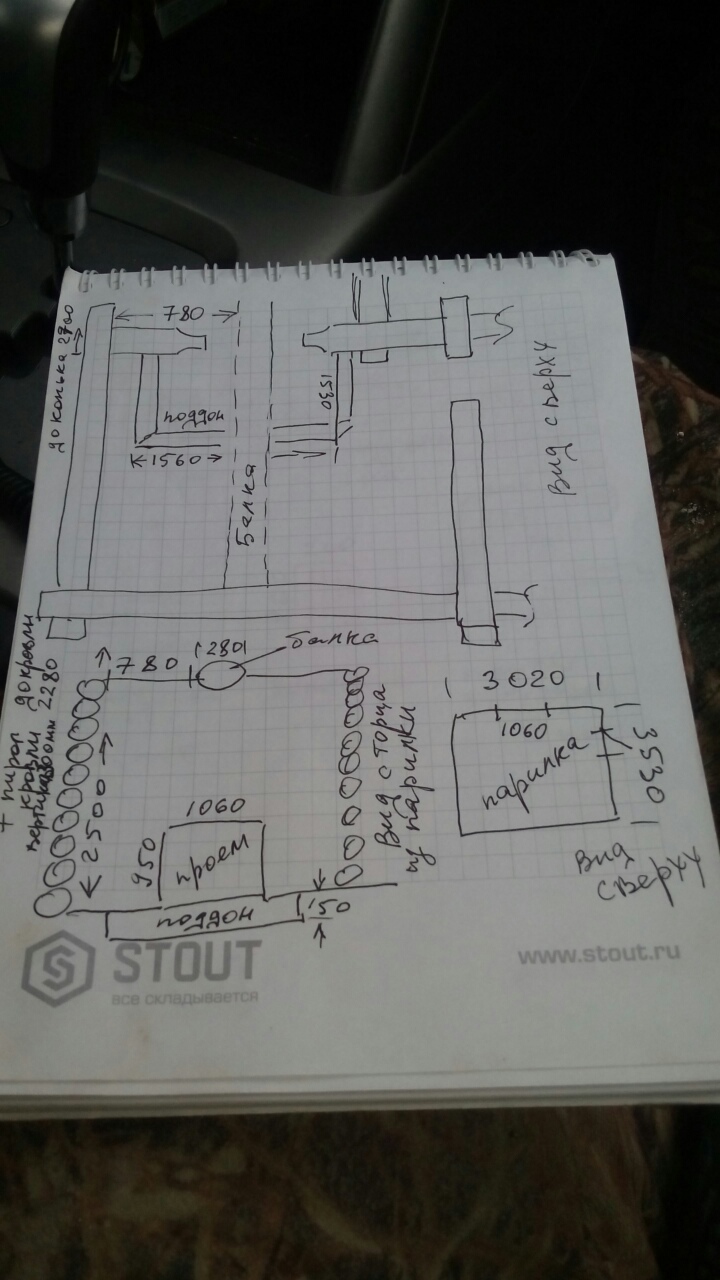 до конька 2700
780
поддон
1560
Балка
1530
Вид сверху
+ пирог
кровли
вертикаль
до кровли
2280
780
280
балка
2500
1060
950
проем
поддон
150
Вид с торца
из парилки
3020
1060
парилка
3530
Вид
сверху
STOUT
все складывается
www.stout.ru